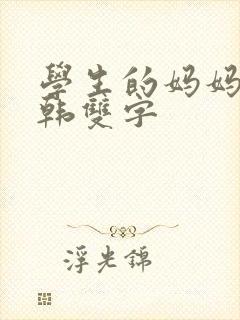 學生的妈妈
韩雙字
浮光錦